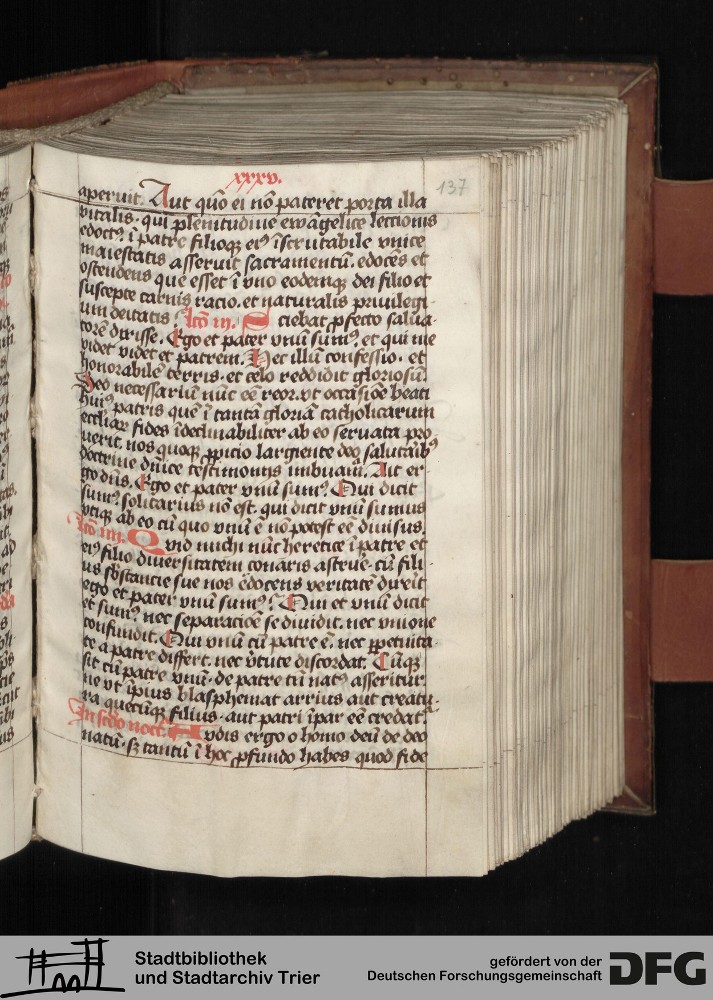 xxxv.
137
aperuit. Aut quō ei nō pateret porta illa
vitalis. qui plenitudine ewāgelice lectionis
edoctꝰ. ī patre filioqꝫ eiꝰ īscrutabile vnice
maiestatis asseruit sacramentū. edocēs et
ostendens que esset ī vno eodemqꝫ dei filio et
suscepte carnis racio. et naturalis priuilegi-
um deitatis lcō iij. Sciebat ꝓfecto salua-
torē dixisse. Ego et pater vnū sumꝰ. et qui me
videt videt et patrem. Hec illū confessio. et
honorabilē terris. et celo reddidit gloriosū.
Sed necessariū nūc eē reor. vt occasiōe beati
huiꝰ patris que ī tantā gloriā catholicarum
ecctiar fides īdeclinabiliter ab eo seruata pro
uerit. nos quoqꝫ ꝓpicio largiente deo salutaribꝰ
doctrine dnīce testimoniis imbuam̄. Ait er-
go dn̄s. Ego et pater vnū sumꝰ. Qui dicit
sumꝰ. solitarius nō est. qui dicit vnū sumus
vtiqꝫ ab eo cū quo vnū ē nō potest eē diuisus.
lcō iiij. Quid michi nūc heretice ī patre et
eiꝰ filio diuersitatem conaris astrue. cū fili-
us sb̄stancie sue nos ēdocens veritatē dixit
ego et pater vnū sumꝰ? Qui et vnū dicit
et sumꝰ. nec separaciōē se diuidit. nec vnione
confundit. Qui vnū cū patre ē. nec ꝑpetuita-
te a patre differt. nec v̄tute discordat. Cūqꝫ
sit cū patre vnū. de patre tn̄ natꝰ asseritur.
ne vt īpius blasphemat arrius aut creatu-
ra quecūqꝫ filius. aut patri īpar eē credat̄.
In sc̄do noct. Audis ergo o homo deū de deo
natū. sꝫ tantū ī hoc ꝓfundo habes quod fide
Stadtbibliothek
und Stadtarchiv Trier
gefördert von der
Deutschen Forschungsgemeinschaft
DFG